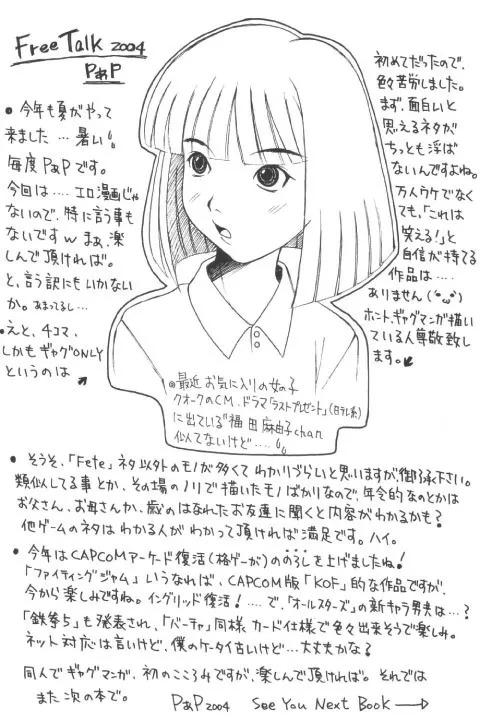 Free Talk 2004
PあP
● 今年も夏がやって
来ました…暑い
毎度PあPです。
今回は‥‥エロ漫画じゃ
ないので、特に言う事も
ないですw まぁ、楽
しんで頂ければ。
と、言う訳にもいかない
か。あまってるし…
●えと、4コマ、
しかもギャグONLY
というのは
初めてだったので、
色々苦労しました。
まず、面白いと
思えるネタが
ちっとも浮ば
ないんですよね。
万人ウケでなく
ても、「これは
笑える!」と
自信が持てる
作品は‥‥
ありません(´・ω・`)
ホント、ギャグマンガ描い
ている人尊敬致し
ます。
◎最近お気に入りの女の子
クオークのCM、ドラマ「ラストプレゼント」(日テレ系)
に出ている"福田麻由子chan
似てないけど‥‥
● そうそ、「Fate」ネタ以外のモノが多くてわかりづらいと思いますが、御了承下さい。
類似してる事とか、その場のノリで描いたモノばかりなので、年令的なのとかは
お父さん、お母さんか、歳のはなれたお友達に聞くと内容がわかるかも?
他ゲームのネタはわかる人がわかって頂ければ満足です。ハイ。
● 今年はCAPCOMアーケード復活(格ゲーが)ののろしを上げましたね!
「ファイティングジャム」いうなれば、CAPCOM版「KOF」的な作品ですが、
今から楽しみですね。イングリッド復活!‥‥で、「オールスターズ」の新キャラ男夫は…?
「鉄拳5」も発表され、「バーチャ」同様カード仕様で色々出来そうで楽しみ。
ネット対応は言いけど、僕のケータイ古いけど…大丈夫かな?
同人でギャグマンガ、初のこころみですが、楽しんで頂ければ。それでは
また次の本で。 PあP2004 See You Next Book